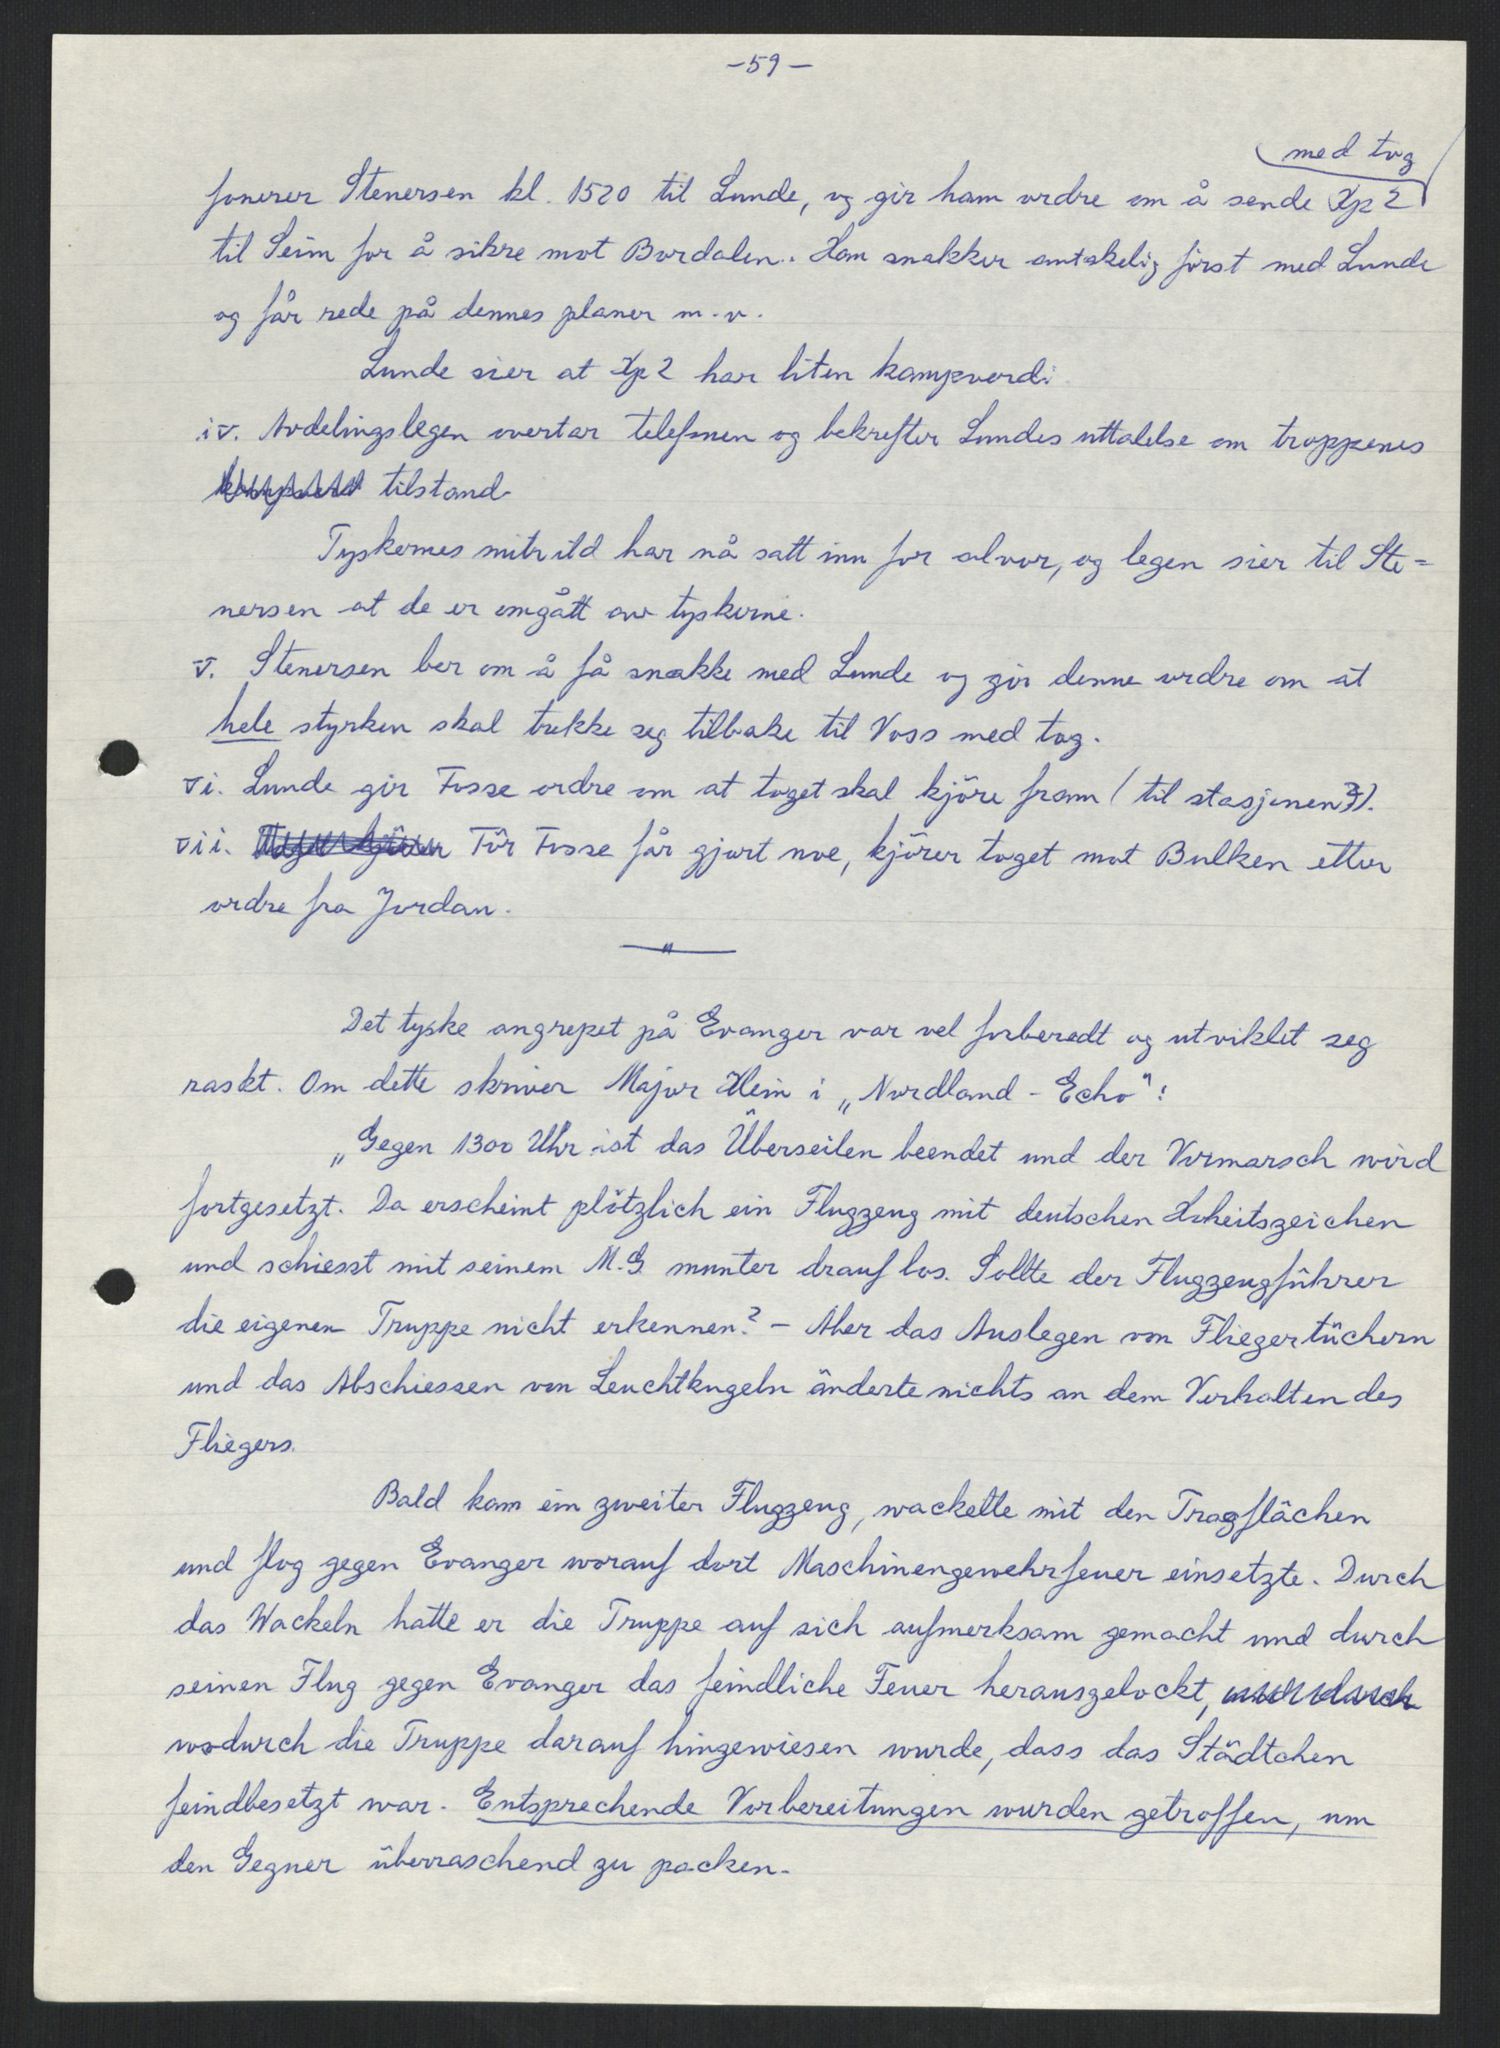 -59-
med tog
fonerer Stenersen kl. 1520 til Lunde, og gir ham ordre om å sende Kp 2
til Seim for å sikre mot Bordalen. Han snakker antakelig først med Lunde
og får rede på dennes planer m.v.
Lunde sier at Kp 2 har liten kampverdi.
iv. Avdelingslegen overtar telefonen og bekrefter Lundes uttalelse om troppenes
tilstand.
Tyskernes mitr.ild har nå satt inn for alvor, og legen sier til Ste=
nersen at de er omgått av tyskerne.
v. Stenersen ber om å få snakke med Lunde og gir denne ordre om at
hele styrken skal trekke seg tilbake til Voss med tog.
vi. Lunde gir Fosse ordre om at toget skal kjöre fram (til stasjonen?).
vii. För Fosse får gjort noe, kjörer toget mot Bulken etter
ordre fra Jordan.
— " —
Det tyske angrepet på Evanger var vel forberedt og utviklet seg
raskt. Om dette skriver Major Klein i „Nordland - Echo":
„Gegen 1300 Uhr ist das Überseilen beendet und der Vormarsch wird
fortgesetzt. Da erscheint plötzlich ein Flugzeug mit deutschen Hoheitszeichen
und schiesst mit seinem M.G. munter drauf los. Sollte der Flugzeugführer
die eigenen Truppe nicht erkennen? - Aber das Auslegen von Fliegertüchern
und das Abschiessen von Leuchtkugeln änderte nichts an dem Verhalten des
Fliegers.
Bald kam ein zweiter Flugzeug, wackelte mit den Tragflächen
und flog gegen Evanger worauf dort Maschinengewehrfeuer einsetzte. Durch
das Wackeln hatte er die Truppe auf sich aufmerksam gemacht und durch
seinen Flug gegen Evanger das feindliche Feuer herausgelockt, und durch
wodurch die Truppe darauf hingewiesen wurde, dass das Städtchen
feindbesetzt war. Entsprechende Vorbereitungen wurden getroffen, um
den Gegner überraschend zu packen.